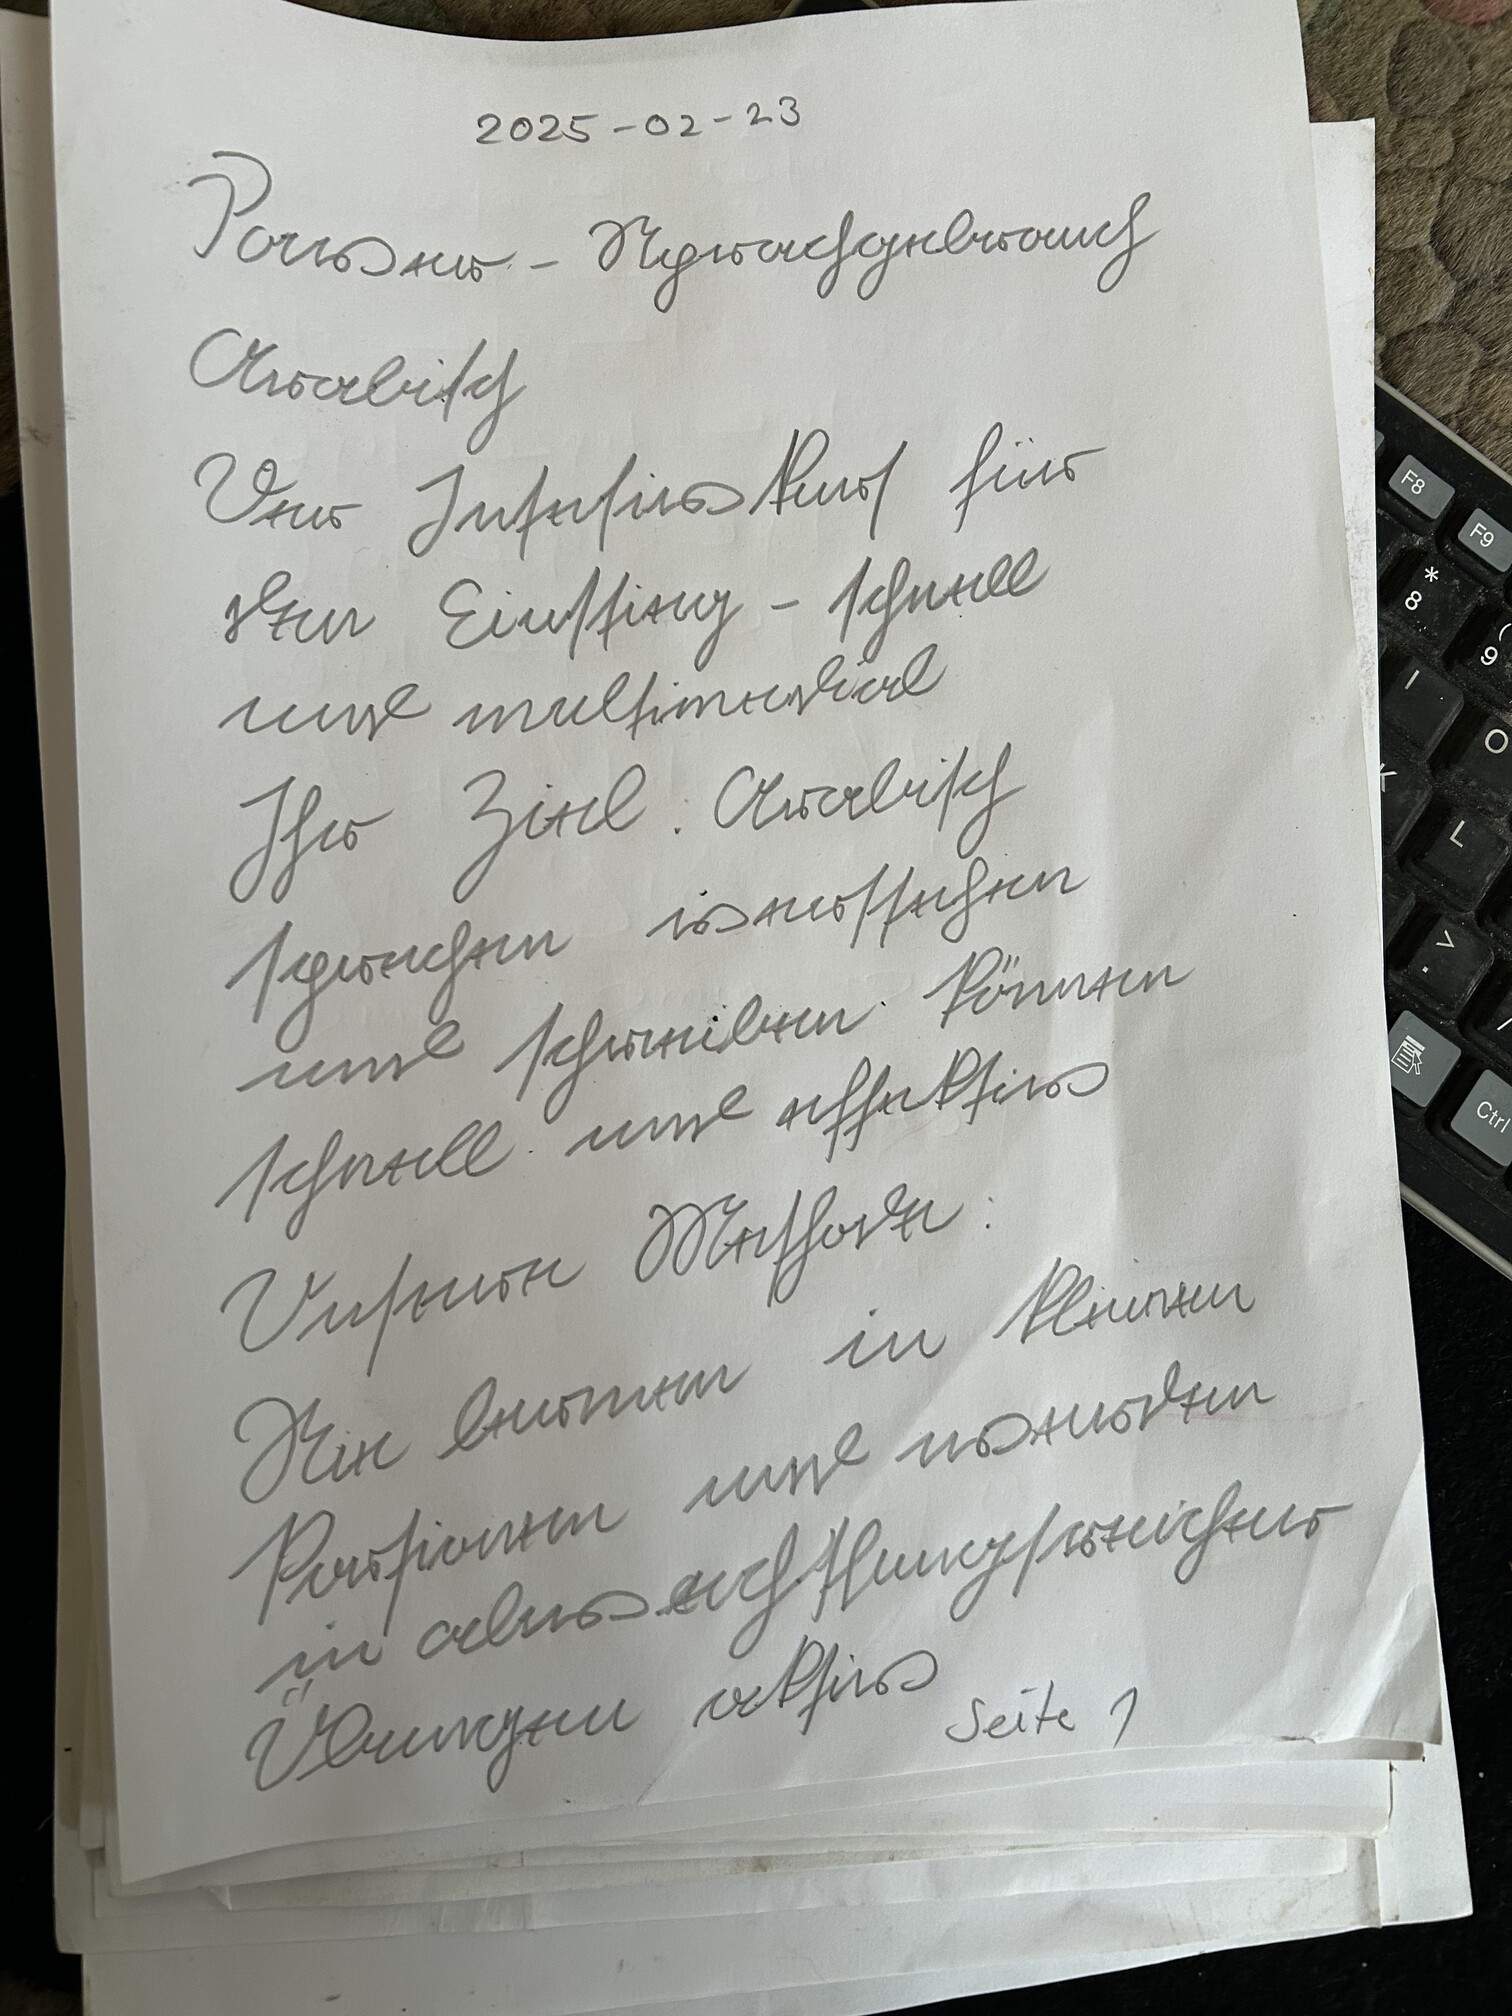 2025-02-23
Power - Sprachgebrauch
Arabisch
Der Intensivkurs für
den Einstieg - schnell
und multimedial
Ihr Ziel: Arabisch
sprechen verstehen
und schreiben können
schnell und effektiv
Unsere Methode:
Sie lernen in kleinen
Portionen und werden
in abwechslungsreicher
Übungen aktiv
Seite 1
F8
F9
* 8
( 9
I
O
K
L
V
Ctrl